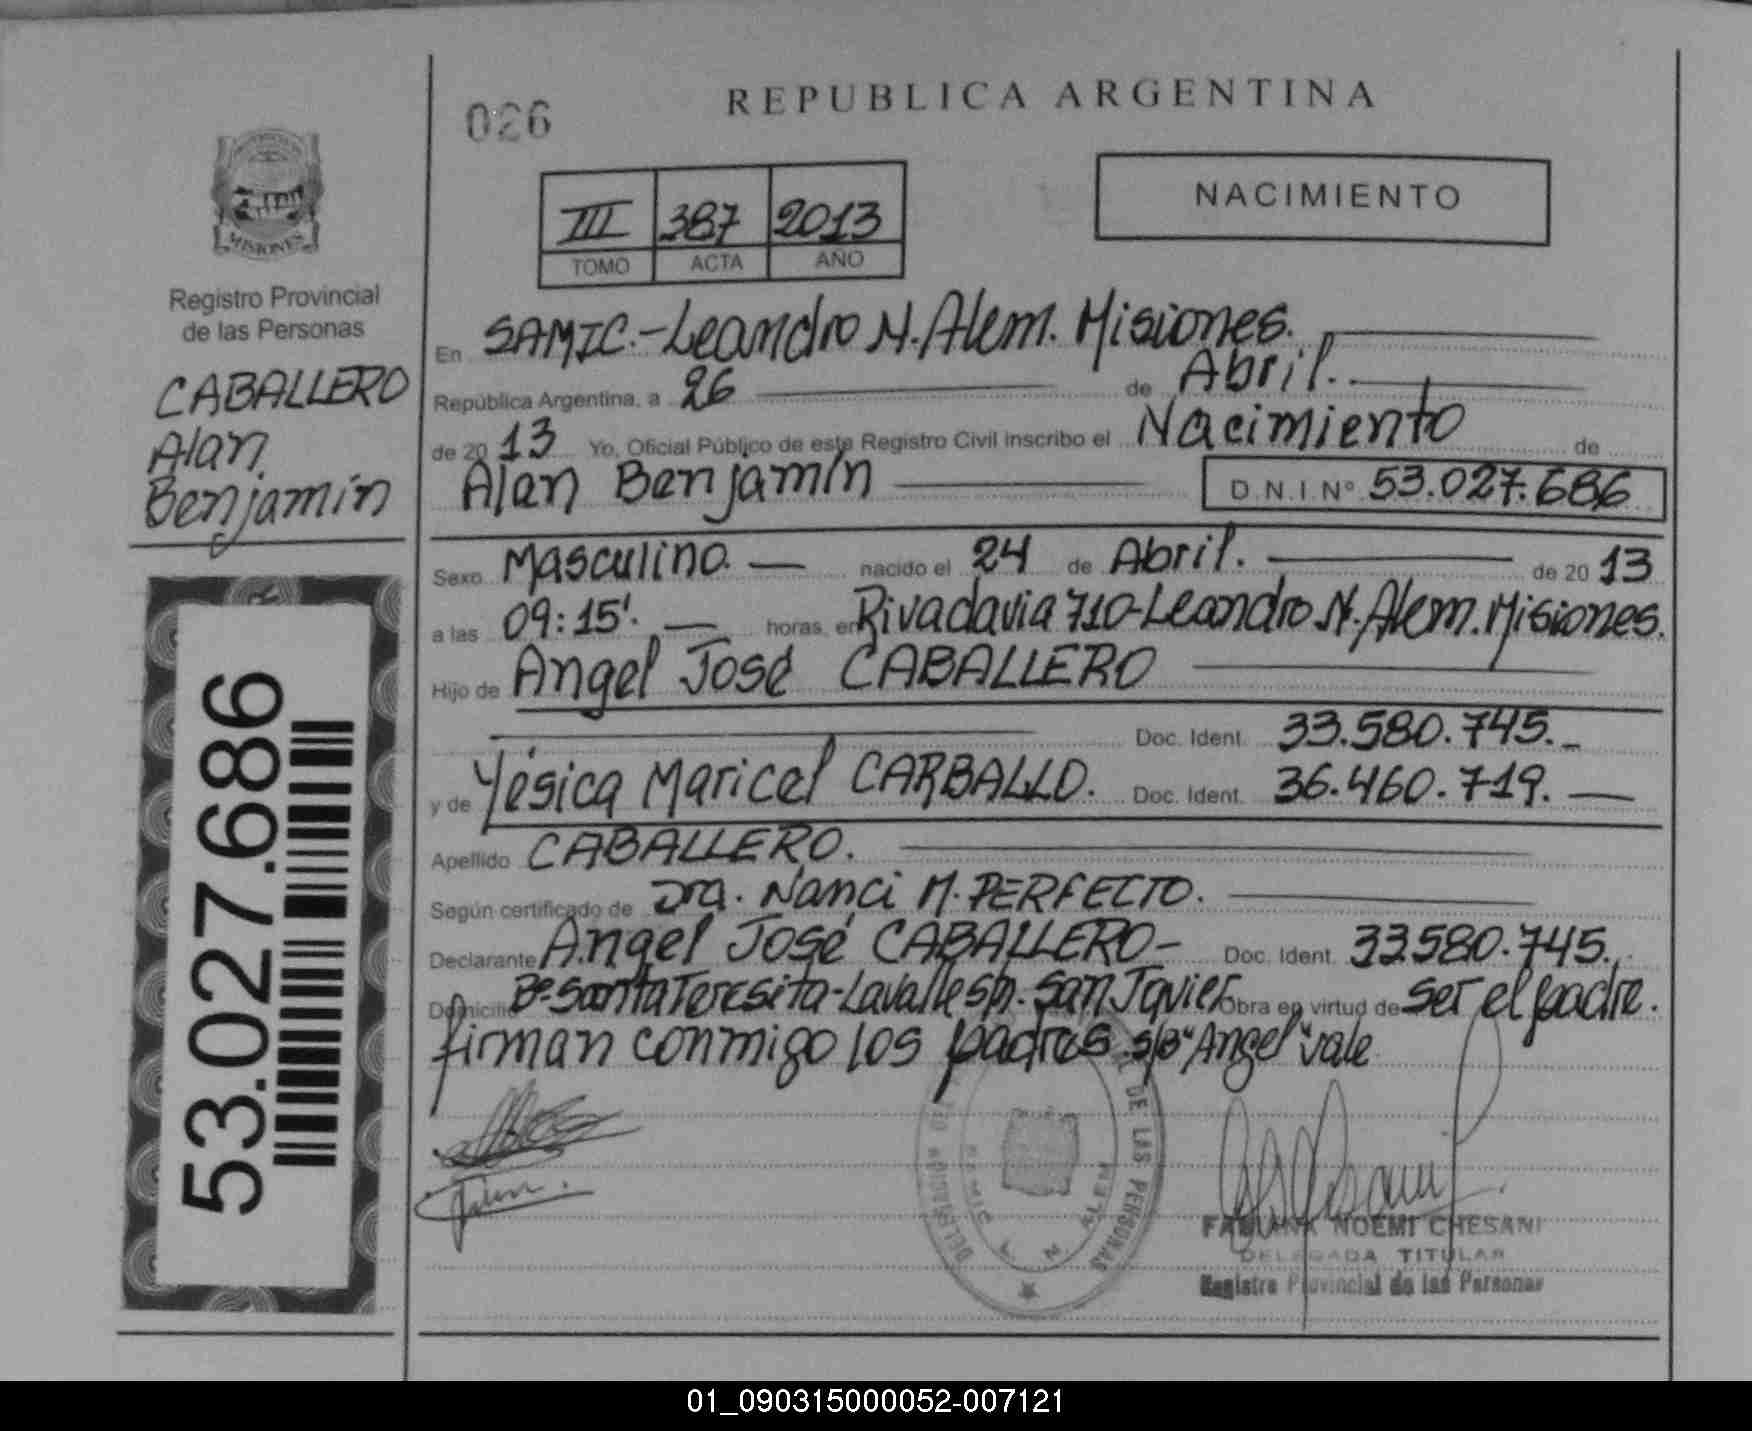 REPUBLICA ARGENTINA
026
NACIMIENTO
III 387 2013
TOMO ACTA AÑO
MISIONES
Registro Provincial
de las Personas
CABALLERO
Alan
Benjamín
53.027.686
En SAMIC.-Leandro N. Alem. Misiones.
República Argentina, a 26 de Abril.
de 2013 Yo, Oficial Público de este Registro Civil inscribo el Nacimiento de
Alan Benjamín D.N.I.Nº 53.027.686
Sexo Masculino. nacido el 24 de Abril. de 2013
a las 09:15'. horas, en Rivadavia 710-Leandro N. Alem. Misiones.
Hijo de Angel José CABALLERO
Doc. Ident. 33.580.745.
y de Yésica Maricel CARBALLO. Doc. Ident. 36.460.719.
Apellido CABALLERO.
Según certificado de Dra. Nanci M. PERFECTO.
Declarante Angel José CABALLERO- Doc. Ident. 33.580.745.
Domicilio Bº Santa Teresita-Lavalle s/n. San Javier Obra en virtud de ser el padre.
firman conmigo los padres. s/b "Angel" vale
DE LAS PERSONAS
SAMIC L. N. ALEM
FABIANA NOEMI CHESANI
DELEGADA TITULAR
Registro Provincial de las Personas
01_090315000052-007121